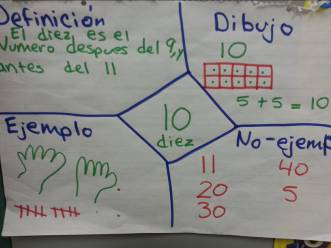 Definición
El diez es el
Numero despues del 9, y
antes del 11
Dibujo
10
5 + 5 = 10
10
diez
Ejemplo
No-ejemp
11 40
20 5
30